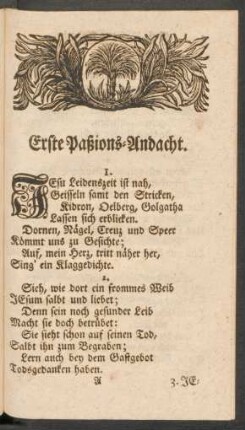 Erste Paßions-Andacht.
1.
JEsu Leidenszeit ist nah,
Geisseln samt den Stricken,
Kidron, Oelberg, Golgatha
Lassen sich erblicken.
Dornen, Någel, Creuz und Speer
Kömmt uns zu Gesichte;
Auf, mein Herz, tritt näher her,
Sing' ein Klaggedichte.
2.
Sieh, wie dort ein frommes Weib
JEsum salbt und liebet;
Denn sein noch gesunder Leib
Macht sie doch betrübet:
Sie sieht schon auf seinen Tod,
Salbt ihn zum Begraben;
Lern auch bey dem Gastgebot
Todsgedanken haben.
A 3. JE-